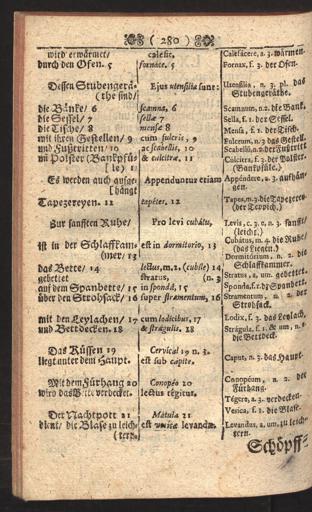 ( 280 )
wird erwärmet/
durch den Ofen. 5
Dessen Stubengerä-
(the sind/
die Bänke/ 6
die Sessel/ 7
die Tische/ 8
mit ihren Gestellen/ 9
und Fußtritten/ 10
im Polster (Bankpfüs-
(le) 11
Es werden auch aufge-
(hängt
Tapezereyen. 12
Zur sanfften Ruhe/
ist in der Schlaffkam-
(mer/ 13
das Bette/ 14
gebettet
auf dem Spanbette/ 15
über den Strohsack/ 16
mit den Leylachen/ 17
und Bettdecken. 18
Das Küssen 19
liegt unter dem Haupt.
Mit dem Fürhang 20
wird das Bette verdecket.
Der Nachtpott 21
dient/ die Blase zu leich-
(tern.
calefit,
fornace. 5
Ejus utensilia sunt:
scamna, 6
sellæ 7
mensæ 8
cum fulcris, 9
ac scabellis, 10
& culcitra, 11
Appenduntur etiam
tapetes, 12
Pro levi cubatu,
est in dormitorio, 13
lectus, m. 2. (cubile) 14
stratus, (n. 3
in sponda, 15
super stramentum, 16
cum lodicibus, 17
& stragulis. 18
Cervical 19 n. 3.
est sub capite.
Conopéo 20
lectus tégitur.
Mátula 21
est vesicæ levandæ.
Calefácere, a. 3. wärmen.
Fornax, f. 3. der Ofen.
Utensília, n. 3. pl. das
Stubengeräthe.
Scamnum, n. 2. die Bank.
Sella, f. 1. der Sessel.
Mensa, f. 1. der Tisch.
Fulcrum, n. 2. das Gestell.
Scabellū, n. 2. der Fußtritt
Culcitra, f. 3. der Polster.
(Bankpfüle.)
Appéndere, a. 3. aufhän-
gen.
Tapes, m. 3. die Tapezerey
(der Teppich.)
Levis, c. 3. u. n. 3. sanfft/
(leicht.)
Cubátus, m. 4. die Ruhe/
(das Liegen.)
Dormitórium, n. 2. die
Schlaffkammer.
Stratus, a. um. gebettet.
Sponda, f. 1. dz Spanbett.
Stramentum, n. 2. der
Strohsack.
Lodix, f. 3. das Leylach.
Strágula, f. 1. & um, n. 2.
die Bettdeck.
Caput, n. 3. das Haupt.
Conopéum, n. 2. der
Fürhang.
Tégere, a. 3. verdecken.
Vesica, f. 1. die Blase.
Levandus, a. um, zu leich-
tern.
Schöpff-